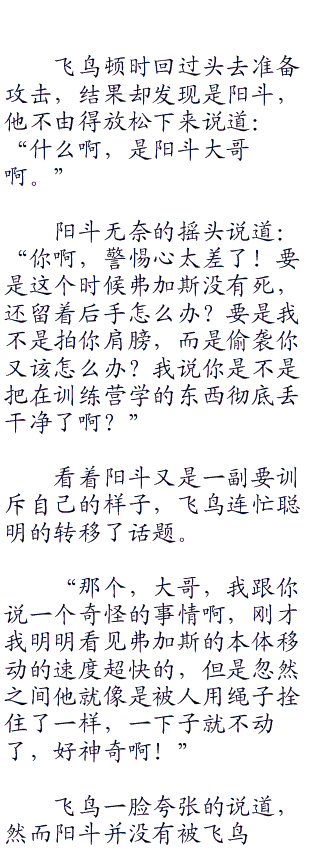 飞鸟顿时回过头去准备
攻击，结果却发现是阳斗，
他不由得放松下来说道：
“什么啊，是阳斗大哥
啊。”
阳斗无奈的摇头说道：
“你啊，警惕心太差了！要
是这个时候弗加斯没有死，
还留着后手怎么办？要是我
不是拍你肩膀，而是偷袭你
又该怎么办？我说你是不是
把在训练营学的东西彻底丢
干净了啊？”
看着阳斗又是一副要训
斥自己的样子，飞鸟连忙聪
明的转移了话题。
“那个，大哥，我跟你
说一个奇怪的事情啊，刚才
我明明看见弗加斯的本体移
动的速度超快的，但是忽然
之间他就像是被人用绳子拴
住了一样，一下子就不动
了，好神奇啊！”
飞鸟一脸夸张的说道，
然而阳斗并没有被飞鸟